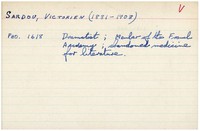 SARDOU, VICTORIEN (1831-1908)
V
POO. 1618 Dramatist; Member of the French
Academy; abandoned medicine
for literature.